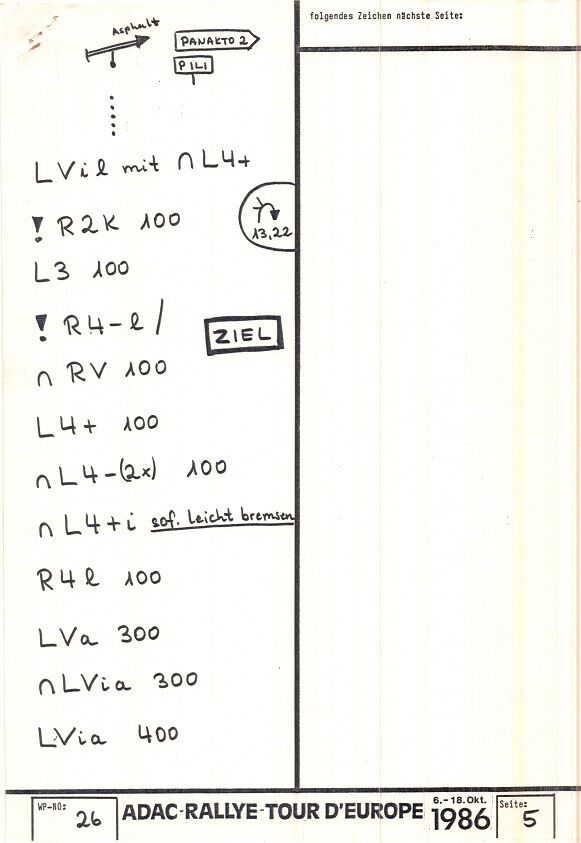 folgendes Zeichen nächste Seite:
Asphalt
PANAKTO 2
PILI
LVil mit ∩ L4+
! R2K 100
13,22
L3 100
! R4-l /
ZIEL
∩ RV 100
L4+ 100
∩ L4-(2x) 100
∩ L4+i sof. leicht bremsen
R4l 100
LVa 300
∩LVia 300
LVia 400
WP-NO: 26
ADAC-RALLYE-TOUR D'EUROPE
6.-18.Okt. 1986
Seite: 5